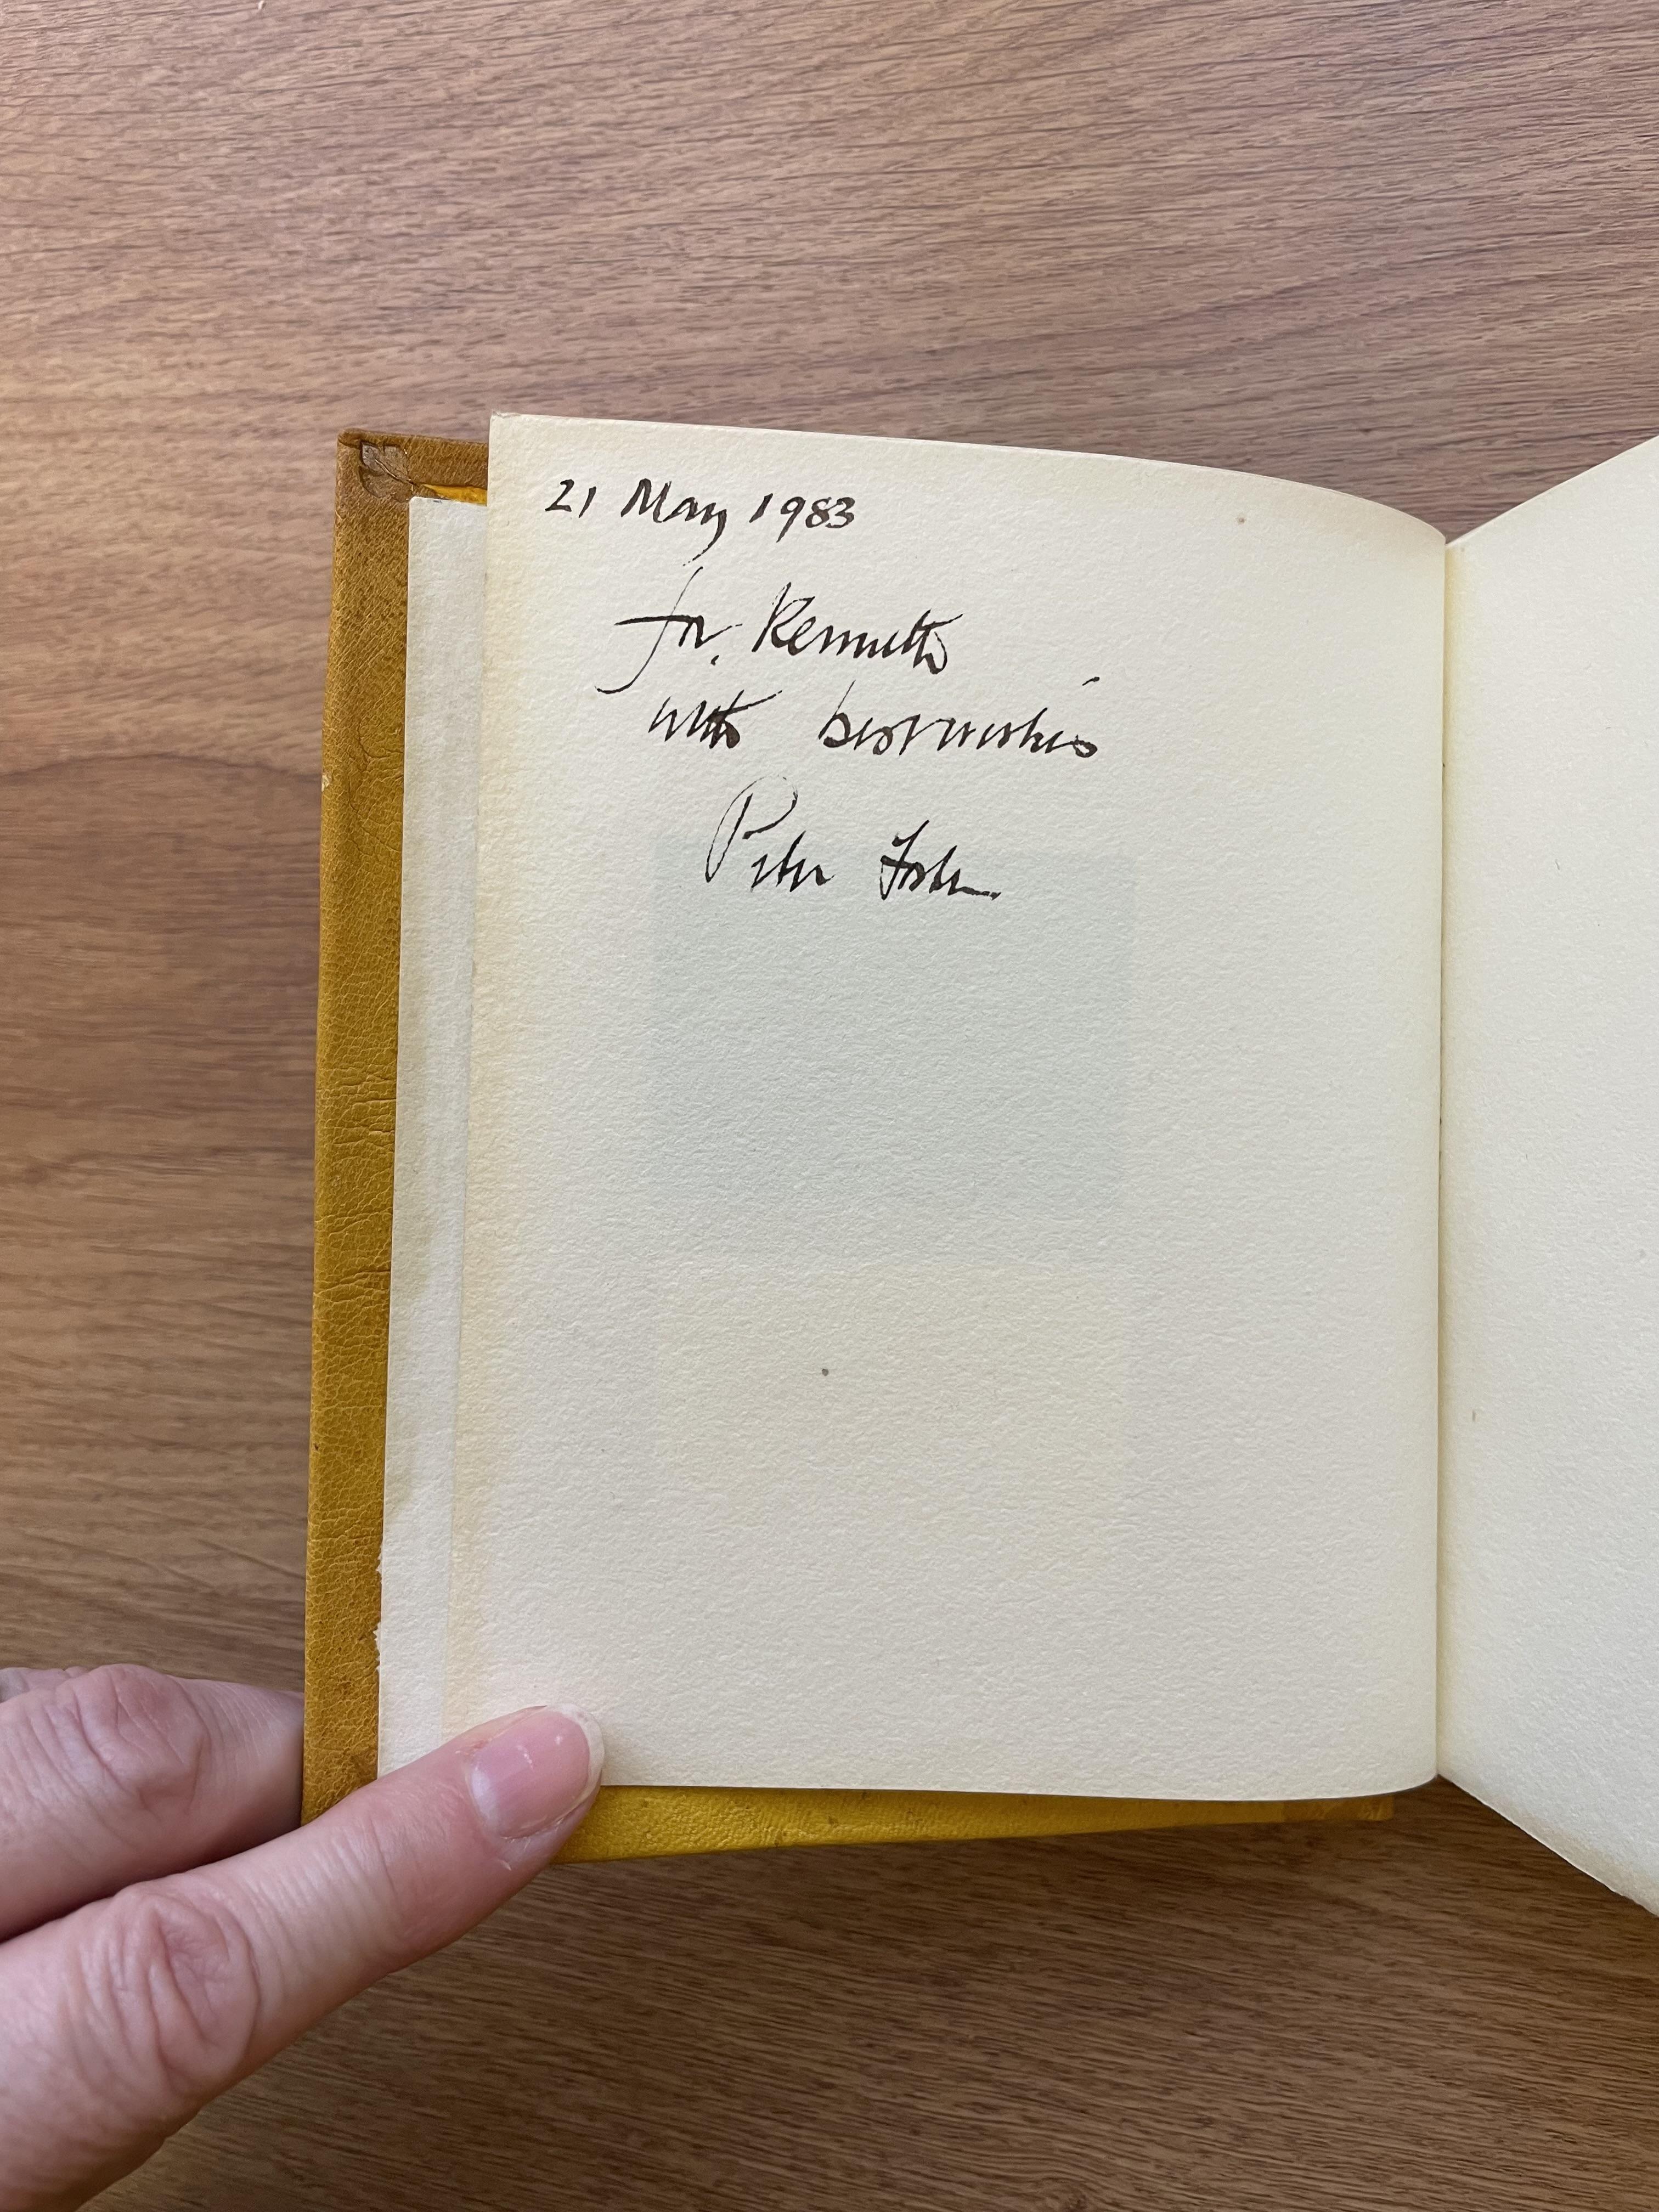 21 May 1983
for Kenneth
with best wishes
Peter Foster